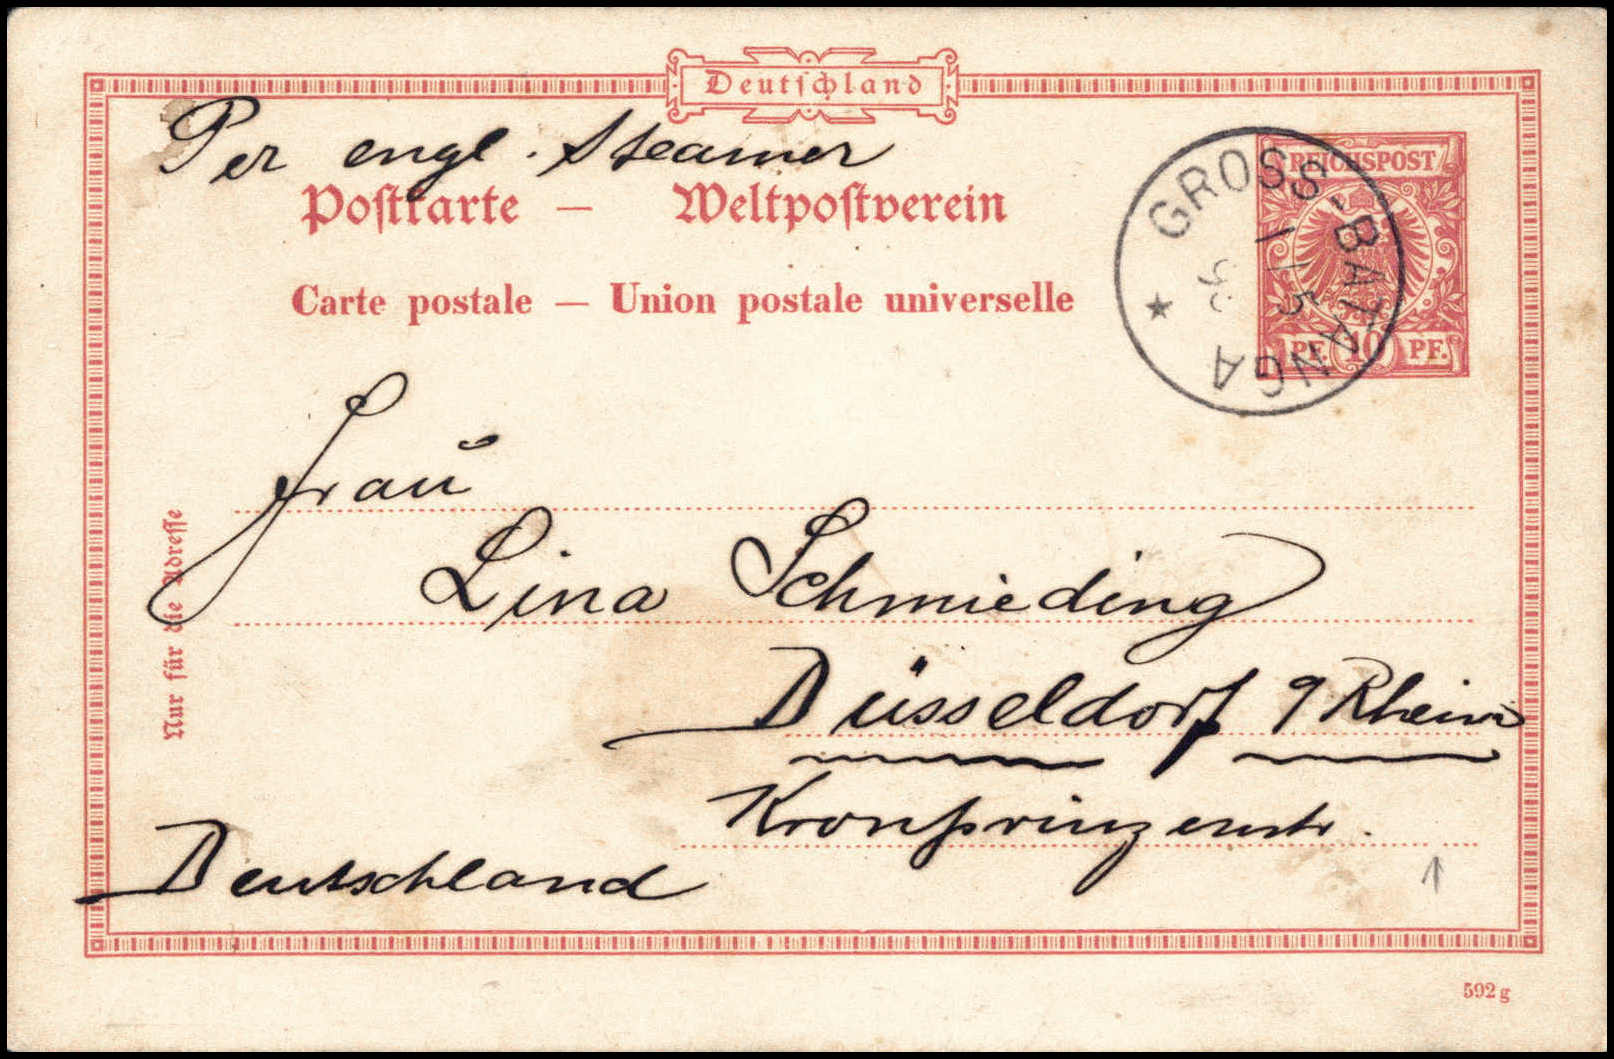 Deutschland
Per engl. Steamer
Postkarte — Weltpostverein
Carte postale — Union postale universelle
REICHSPOST
PF. 10 PF.
GROSS-BATANGA
1 5
Frau
Lina Schmieding
Düsseldorf Rhein
Kronprinzenstr.
Deutschland
Nur für die Adresse
592g